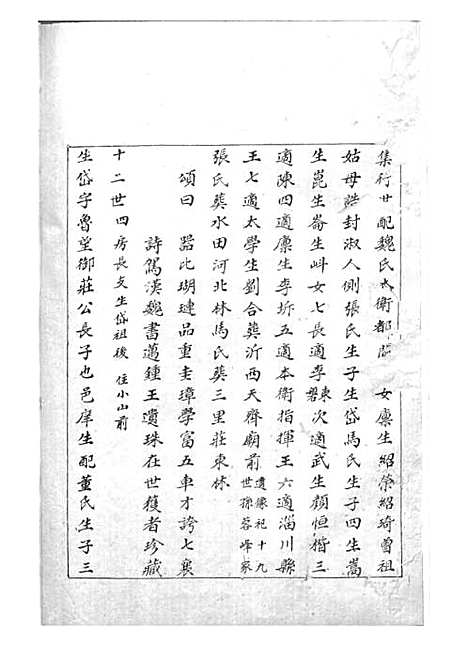 集行廿配魏氏大衛都 女廩生紹榮紹琦曾祖
姑母誥封淑人側張氏生子生岱馬氏生子四生嵩
生崑生崙生㠶女七長適李東磐次適武生顏恒楷三
適陳四適廩生李圻五適本衛指揮王六適淄川縣
王七適太學生劉合葬沂西天齊廟前遺像祀十九世孫蓉峰家
張氏葬水田河北林馬氏葬三里莊東林
頌曰 器比瑚璉品重圭璋學富五車才誇七襄
詩駕漢魏書邁鍾王遺珠在世獲者珍藏
十二世四房長支生岱祖後 住小山前
生岱字魯望御莊公長子也邑庠生配董氏生子三